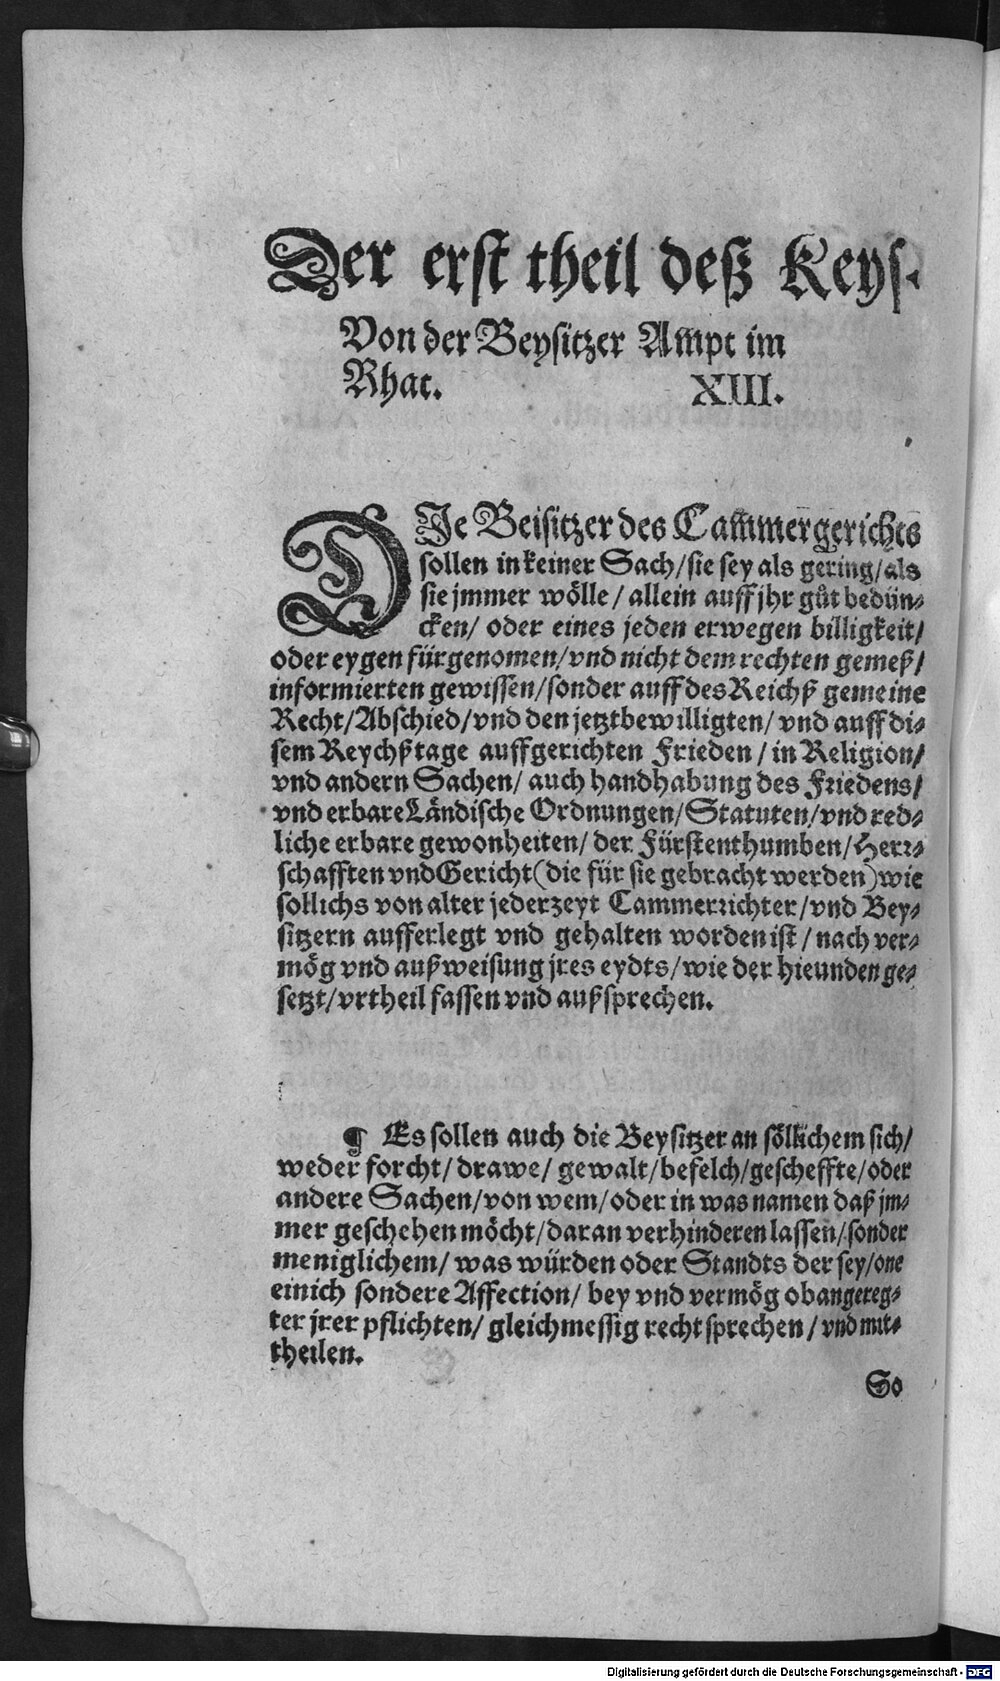 Der erst theil deß Keys⸗
Von der Beysitzer Ampt im
Rhat. XIII.
DIe Beisitzer des Cammergerichts
sollen in keiner Sach/sie sey als gering/als
sie jmmer wölle/ allein auff jhr gůt bedün⸗
cken/ oder eines jeden erwegen billigkeit/
oder eygen fürgenomen/vnd nicht dem rechten gemeß/
informierten gewissen/sonder auff des Reichß gemeine
Recht/Abschied/vnd den jetztbewilligten/ vnd auff di⸗
sem Reychßtage auffgerichten Frieden/ in Religion/
vnd andern Sachen/ auch handhabung des Friedens/
vnd erbare Ländische Ordnungen/Statuten/vnd red⸗
liche erbare gewonheiten/ der Fürstenthumben/Herr⸗
schafften vnd Gericht(die für sie gebracht werden)wie
sollichs von alter jederzeyt Cammerrichter/vnd Bey⸗
sitzern aufferlegt vnd gehalten worden ist/ nach ver⸗
mög vnd außweisung jres eydts/wie der hieunden ge⸗
setzt/vrtheil fassen vnd außsprechen.
¶ Es sollen auch die Beysitzer an söllichem sich/
weder forcht/drawe/ gewalt/befelch/gescheffte/oder
andere Sachen/von wem/oder in was namen daß jm⸗
mer geschehen möcht/daran verhinderen lassen/sonder
meniglichem/ was würden oder Standts der sey/one
einich sondere Affection/ bey vnd vermög obangereg⸗
ter jrer pflichten/ gleichmessig recht sprechen/vnd mit⸗
theilen.
So
Digitalisierung gefördert durch die Deutsche Forschungsgemeinschaft - DFG